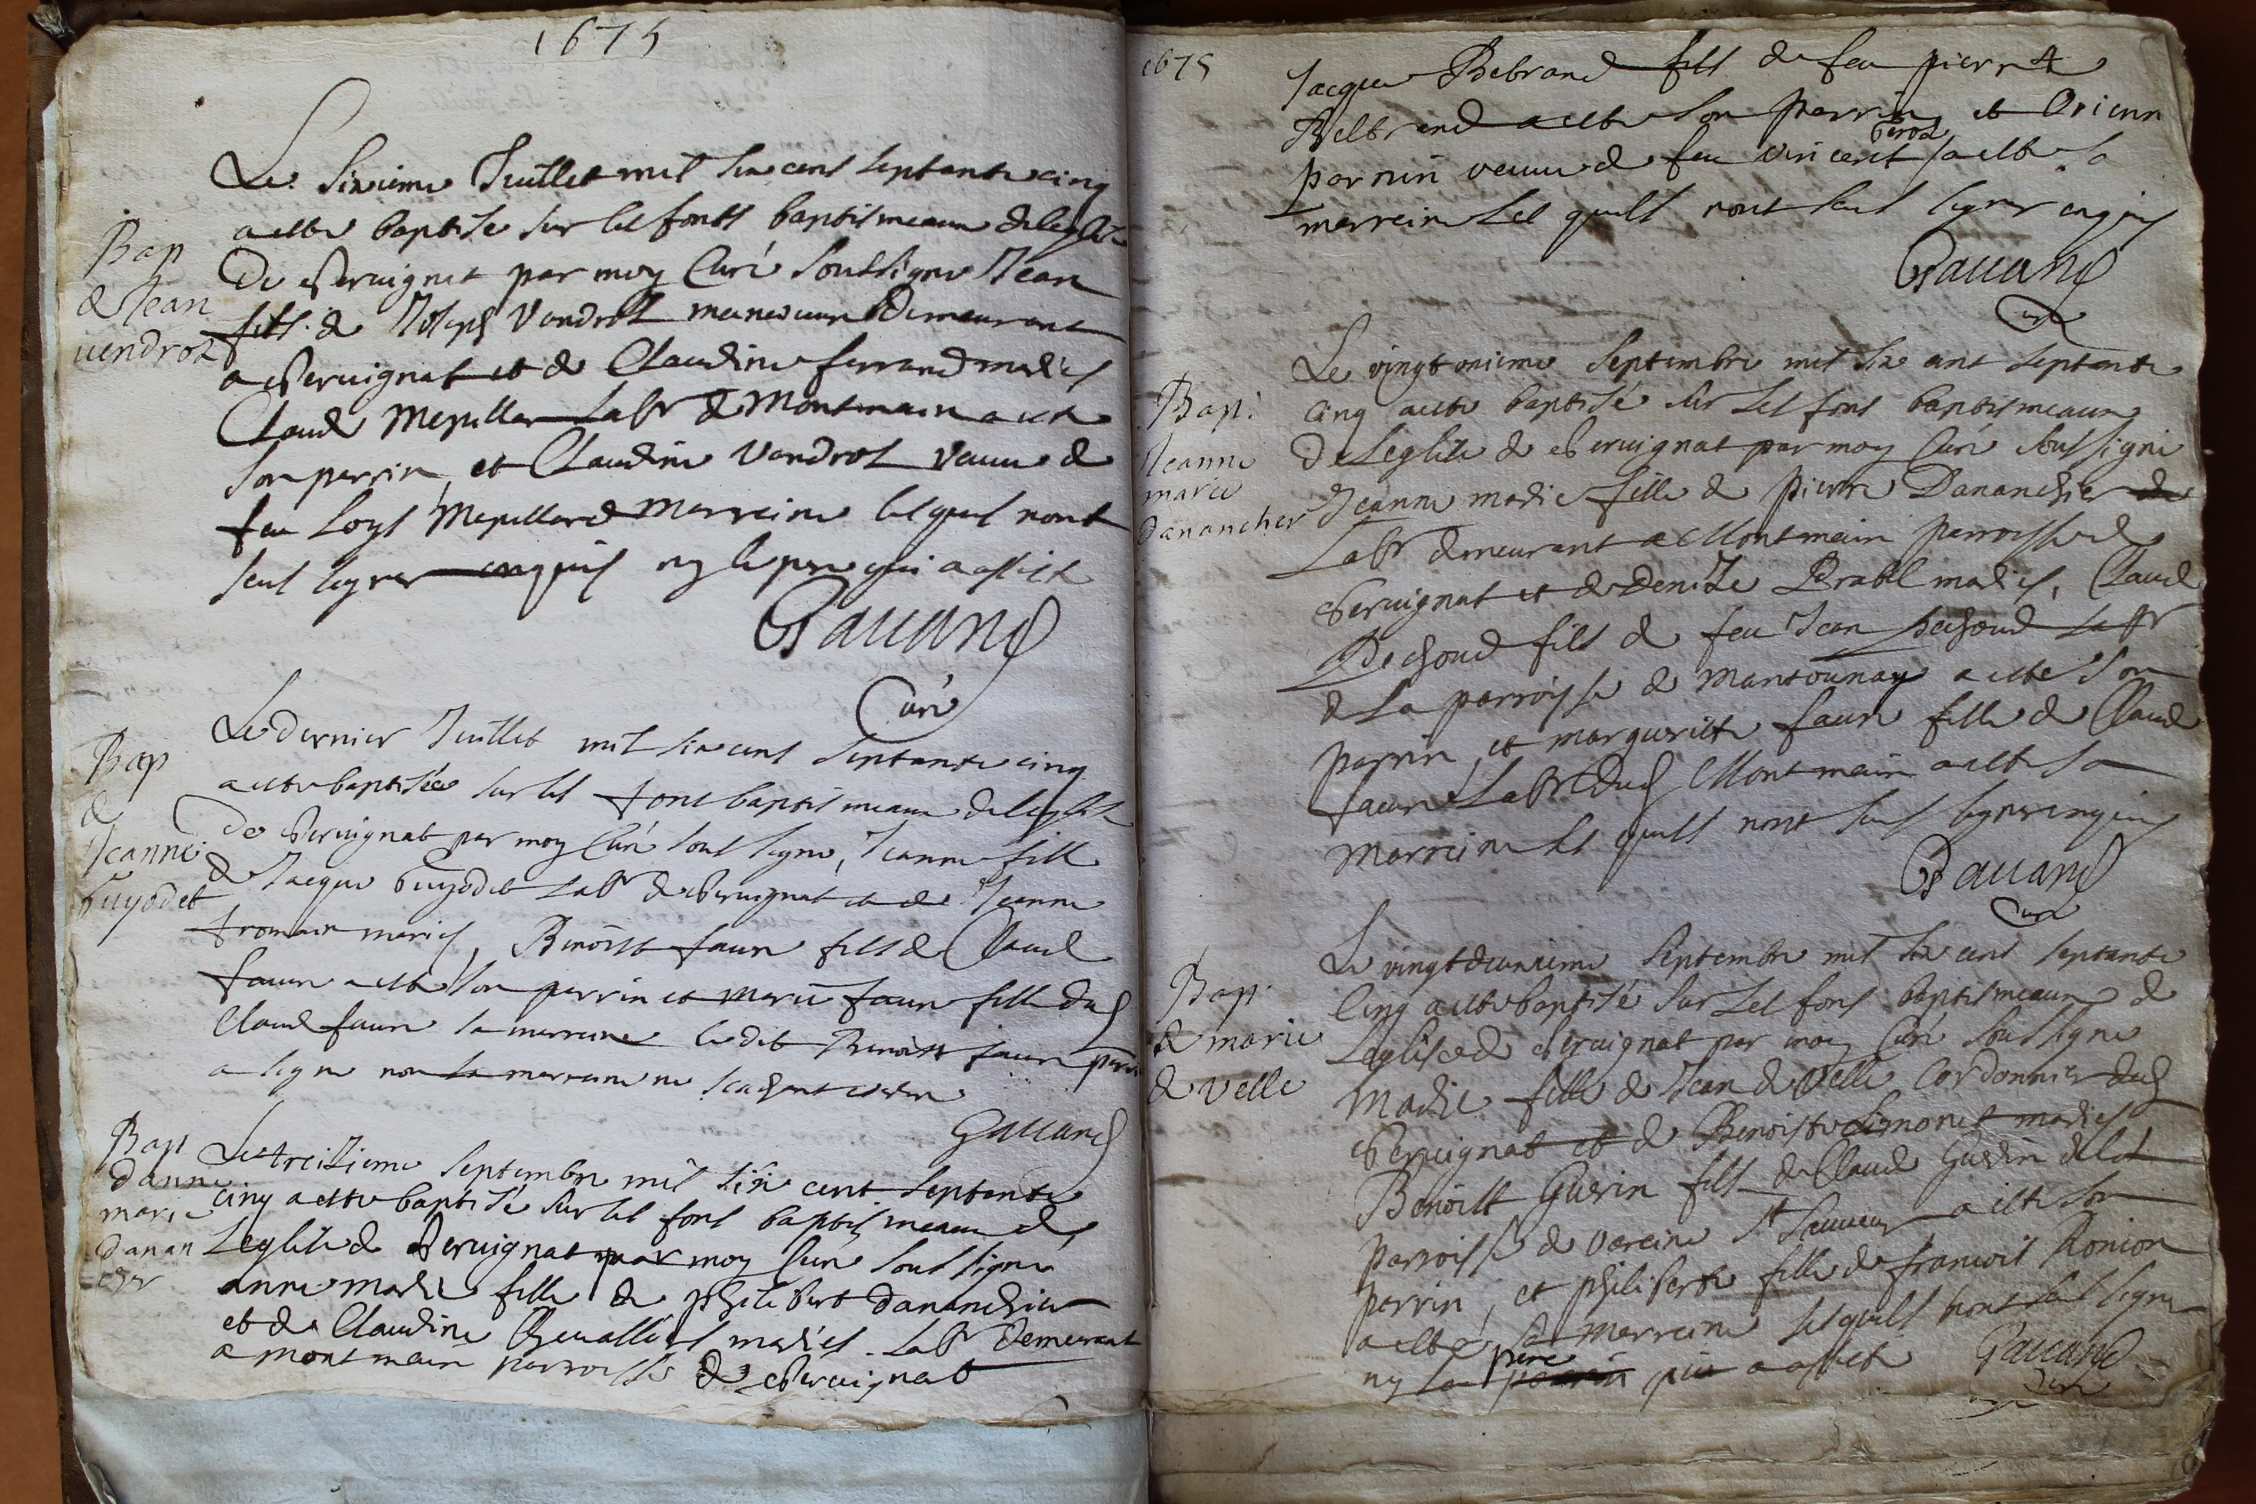 1675
Bap
de Jean
vendrot
Le sixieme Juillet mil six cent septante cinq
a esté baptisé sur les fonts baptismeaux de leglise
De cheruignat par moy Curé soussigné Jean
fils de Joseph Vendrot manouurier Demeurant
a cheruignat et de Claudine ferrand mariés
Claude Mepillar Labr de Montmain a esté
son perrin et Claudine Vendrot veuue de
feu Loys Mepillard Merreine lesquels n'ont
sceu signer enquis ny le pere qui a assisté
Gauand
Curé
Bap
de
Jeanne
Guyodet
Le dernier Juillet mil six cens septante cinq
a esté baptisée sur les fons baptismeaux de leglise
De cheruignat par moy Curé soussigné, Jeanne fille
de Jacque Guyodet Labr de cheruignat et de Jeanne
fromain mariés, Benoist faure fils de Claude
faure a esté son perrin et Marie faure fille dud
Claude faure sa merreine ledit Benoist faure perrin
a signé non la merreine ne scachant
Gauand
Bap
danne
marie
danan
cher
Le treizieme septembre mil six cent septante
cinq a esté baptisé sur les fons baptismeaux de
Leglise de cheruignat par moy Curé soussigné
anne marie fille de philibert dananchier
et de Claudine Cheuallier mariés Labr demeurant
a montmain parroisse de cheruignat
1675
Jacque Bebrand fils de feu pierre
Belbrand a esté son perrin et
perrin veuue de feu vincent a esté sa
merreine lesquels n'ont sceu signer enquis
Gauand
Curé
Bap:
Jeanne
marie
dananchier
Le vingt onzieme septembre mil six cent septante
cinq a esté baptisé sur les fons baptismeaux
de Leglise de cheruignat par moy Curé soussigné
Jeanne marie fille de pierre Dananchier de
Labr demeurant a Montmain parroisse de
cheruignat et de denize mariés, Claude
Dechoud fils de feu Jean Dechoud Labr
de La parroisse de mantounay a esté son
parrin et marguerite faure fille de Claude
faure Labr dud Montmain a esté sa
marreine lesquels n'ont sceu signer enquis
Gauand
Curé
Bap
de marie
de velle
Le vingt deuxieme septembre mil six cent septante
Cinq a esté baptisé sur les fons baptismeaux de
Leglise de cheruignat par moy Curé soussigné
Marie fille de Jean de Velle Cordonnier dud
cheruignat et de Benoiste Simonet mariés
Benoist Guerin fils de Claude Guerin de la
parroisse de vareine St Sauueur a esté son
perrin, et philiberte fille de francois Ronion
a esté sa merreine lesquels n'ont sceu signer
ny le pere qui a assisté Gauand
Curé